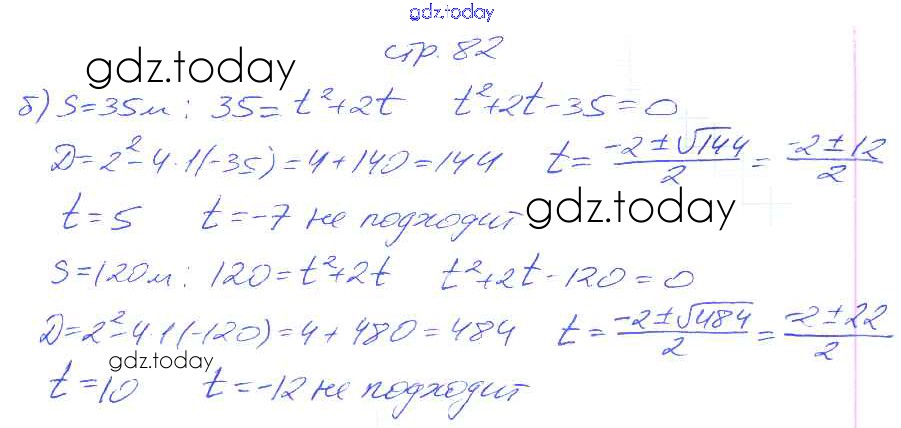 gdz.today
стр. 82
gdz.today
б) S=35м: 35=t²+2t t²+2t-35=0
D=2²-4·1(-35)=4+140=144 t=(-2±√144)/2=(-2±12)/2
t=5 t=-7 не подходит
gdz.today
S=120м: 120=t²+2t t²+2t-120=0
D=2²-4·1(-120)=4+480=484 t=(-2±√484)/2=(-2±22)/2
gdz.today
t=10 t=-12 не подходит